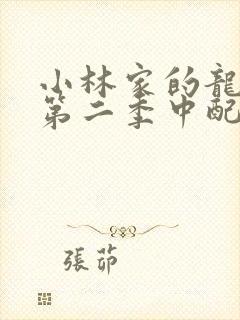 小林家的龍
第二季中配
張茆